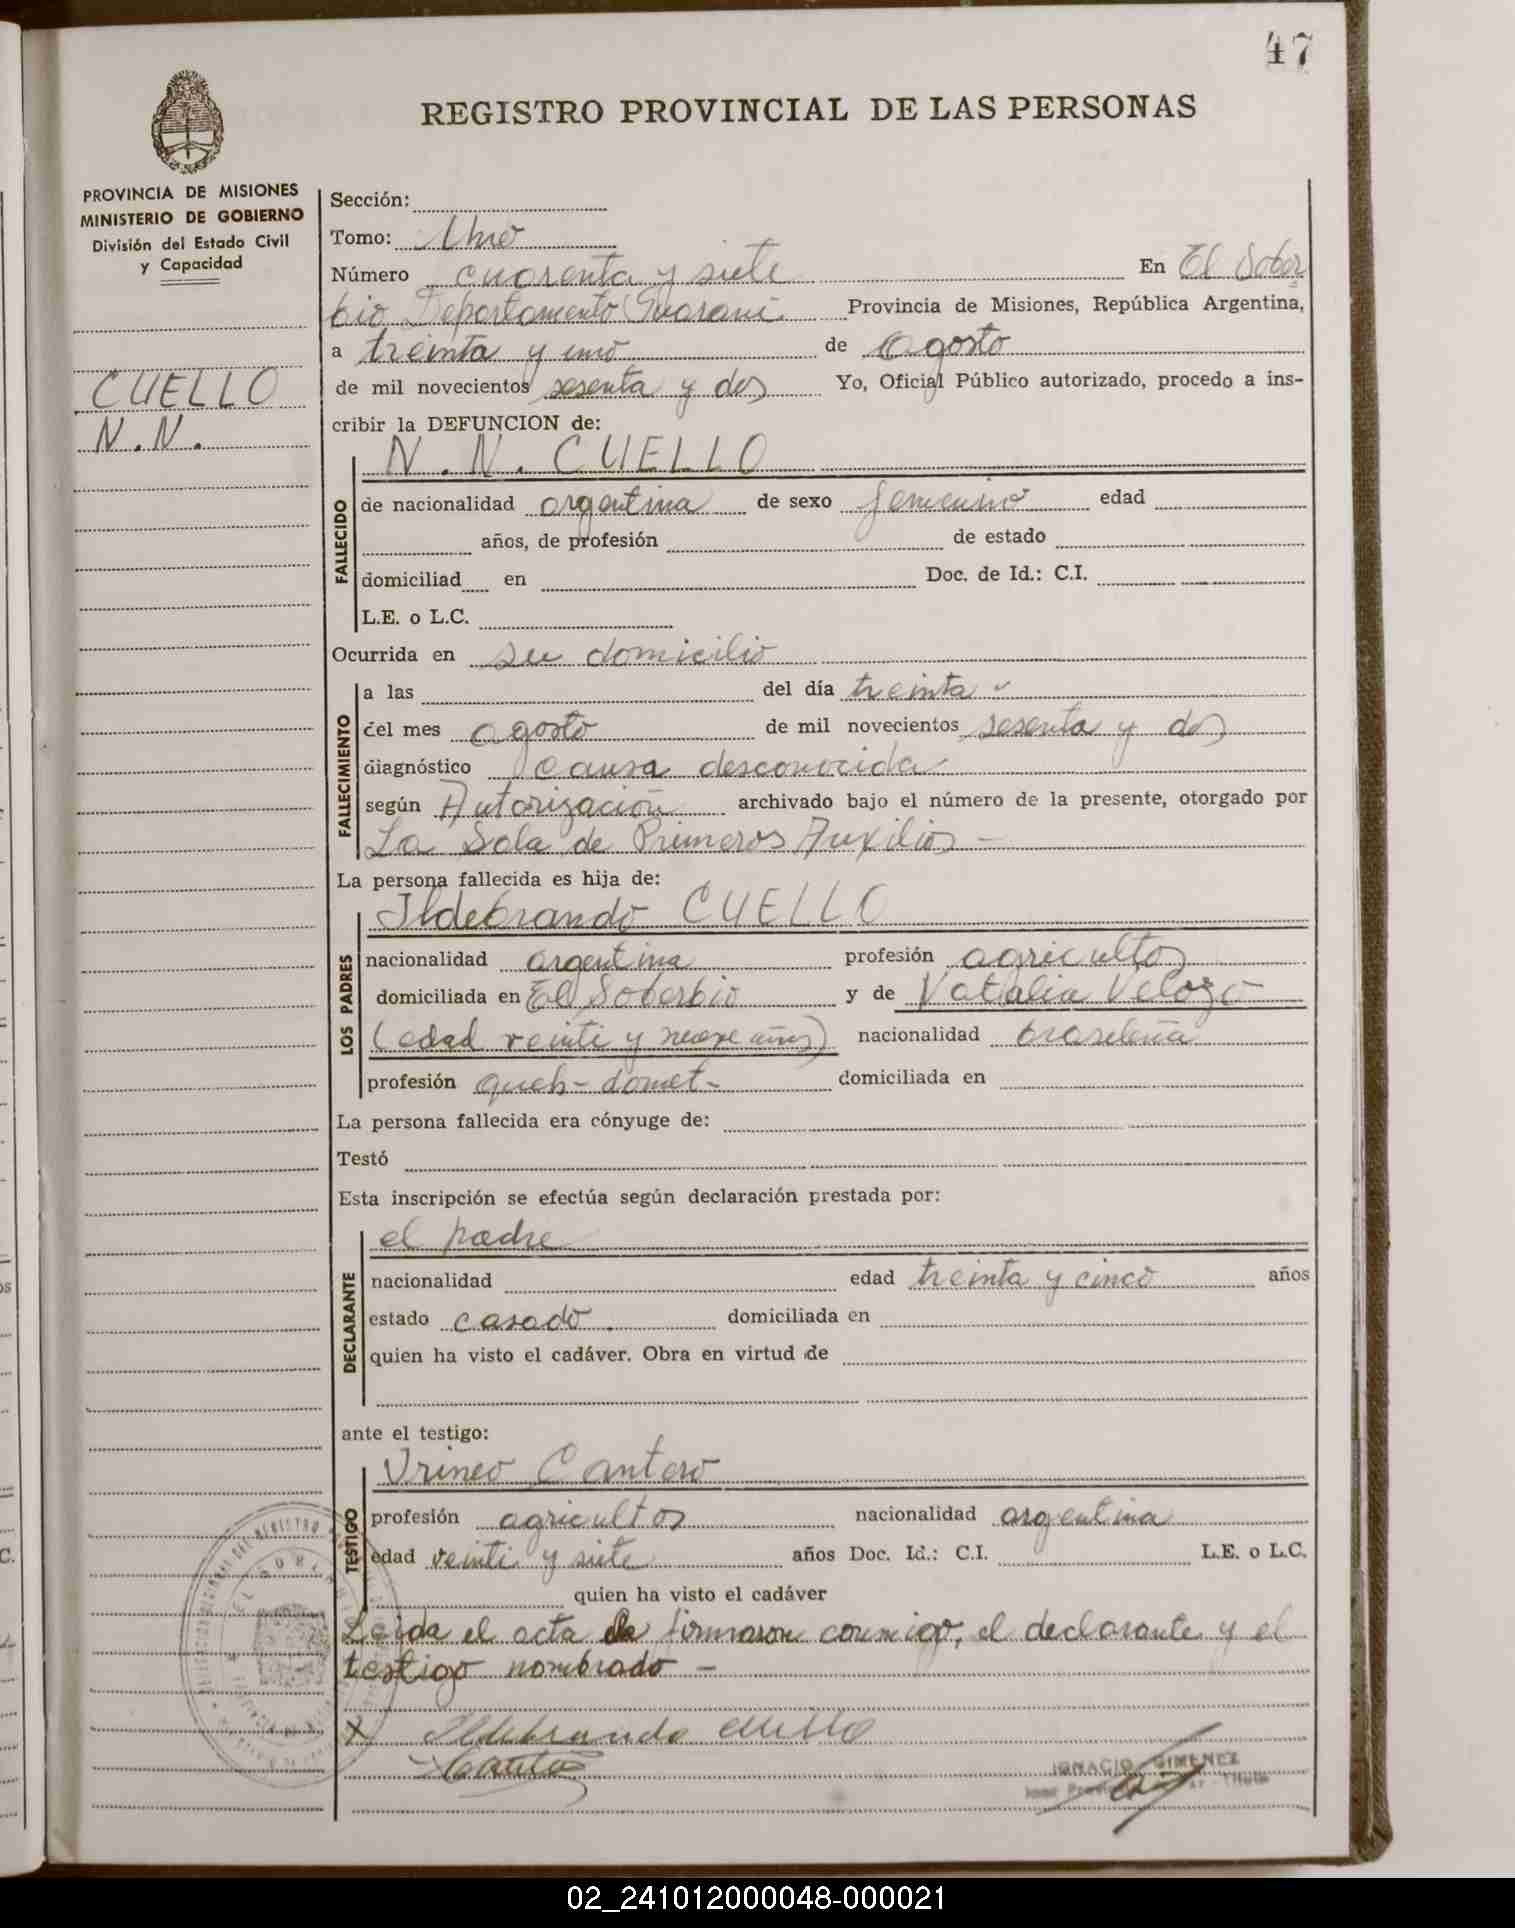 47
REGISTRO PROVINCIAL DE LAS PERSONAS
PROVINCIA DE MISIONES
MINISTERIO DE GOBIERNO
División del Estado Civil
y Capacidad
CUELLO
N.N.
Sección:
Tomo: Uno
Número cuarenta y siete En El Sober
bio Departamento Guaraní. Provincia de Misiones, República Argentina,
a treinta y uno de agosto
de mil novecientos sesenta y dos Yo, Oficial Público autorizado, procedo a ins-
cribir la DEFUNCION de:
N.N. CUELLO
FALLECIDO
de nacionalidad argentina de sexo femenino edad
años, de profesión de estado
domiciliad en Doc. de Id.: C.I.
L.E. o L.C.
Ocurrida en su domicilio
FALLECIMIENTO
a las del día treinta
del mes agosto de mil novecientos sesenta y dos
diagnóstico causa desconocida
según Autorización archivado bajo el número de la presente, otorgado por
La Sala de Primeros Auxilios -
La persona fallecida es hija de:
LOS PADRES
Ildebrando CUELLO
nacionalidad argentina profesión agricultor
domiciliada en El Soberbio y de Natalia Velozo
(edad veinti y nueve años) nacionalidad brasileña
profesión queh- domet- domiciliada en
La persona fallecida era cónyuge de:
Testó
Esta inscripción se efectúa según declaración prestada por:
DECLARANTE
el padre
nacionalidad edad treinta y cinco años
estado casado. domiciliada en
quien ha visto el cadáver. Obra en virtud de
ante el testigo:
TESTIGO
Irineo Cantero
profesión agricultor nacionalidad argentina
edad veinti y siete años Doc. Id.: C.I. L.E. o L.C.
quien ha visto el cadáver
Leida el acta la firmaron conmigo, el declarante y el
testigo nombrado -
X Ildebrando Cuello
IGNACIO GIMENEZ
02_241012000048-000021